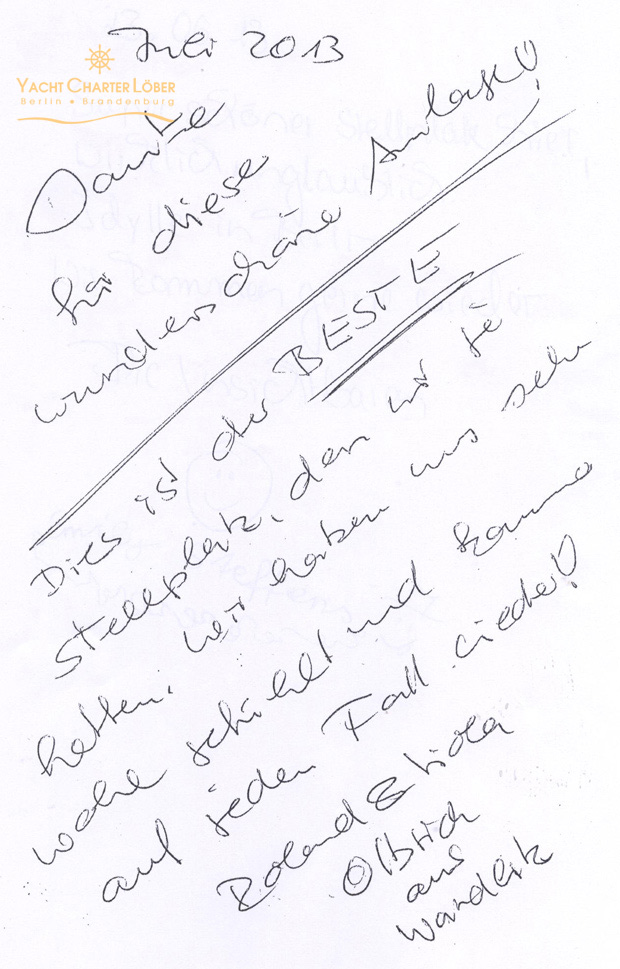 Juli 2013
YACHT CHARTER LÖBER
Berlin • Brandenburg
Danke
für diese
wunderschöne Anlage!
Dies ist der BESTE
Stellplatz, den wir je
hatten. Wir haben uns sehr
wohl gefühlt und kommen
auf jeden Fall wieder!
Roland &
Olbrich
aus
Wandlitz